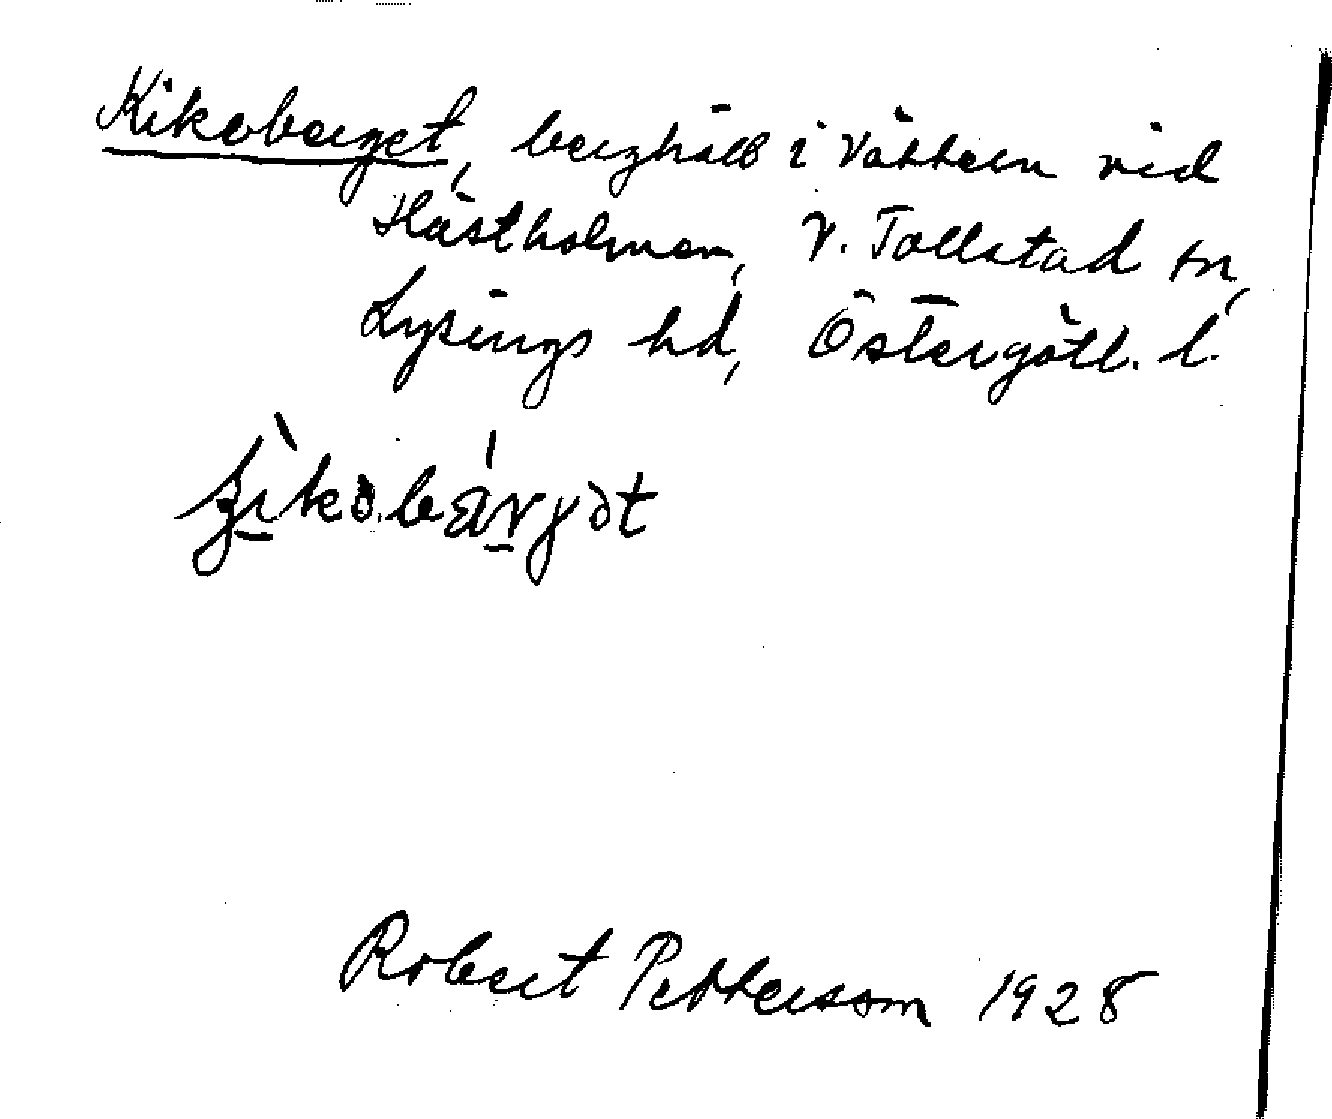 Kikoberget, berghäll i Vättern vid
Hästholmen, V. Tollstad sn,
Lysings hd, Östergötl. l.
Robert Pettersson 1928